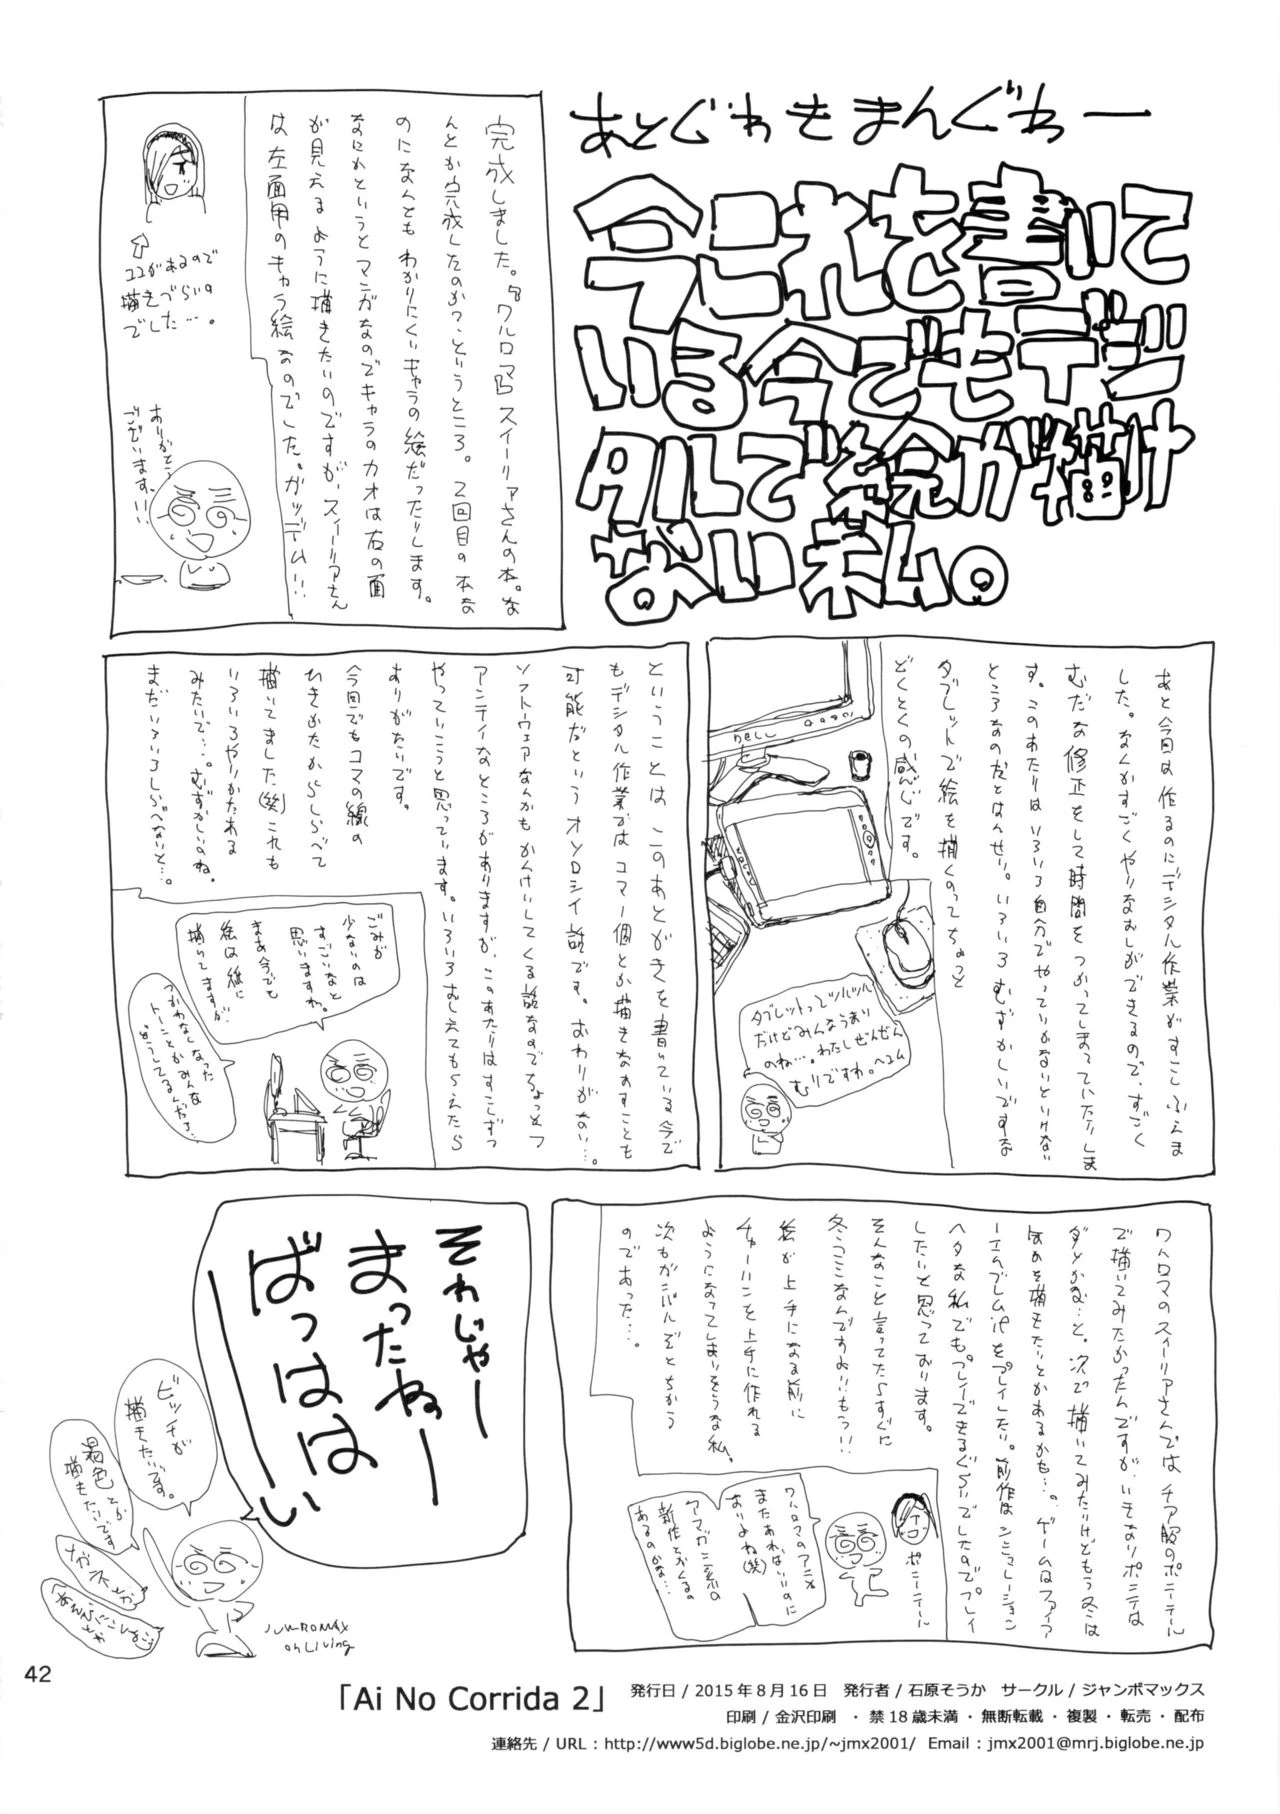 あとぐわきまんぐわー
今これを書いて
いる今でもデジ
タルで絵が描け
ない私。
完成しました。『ワルロマ』スイーリアさんの本。な
んとか完成したのかっ、というところ。2回目の本な
のになんともわかりにくいキャラの絵だったりします。
なにかというとマンガなのでキャラのカオは右の面
が見えるように描きたいのですが、スイーリアさん
は左面用のキャラ絵なのでした。ガッデム!!
ココがあるので
描きづらいの
でした…。
ありがとう
ございます!!
あと今回は作るのにデジタル作業がすこしふえま
した。なんかすごくやりなおしができるので、すごく
むだな修正をして時間をつかってしまっていたりしま
す。このあたりはいろいろ自分でやっていかないといけない
ところなのだとはんせい。いろいろむずかしいですな
タブレットで絵を描くのってちょっと
どくとくの感じです。
DELL
タブレットってツルツル
だけどみんなうまい
のね…。わたしぜんぜん
むりですわ。ヘコム
ということはこのあとがきを書いている今で
もデジタル作業ではコマ一個とか描きなおすことも
可能だというオソロシイ話です。おわりがない…。
ソフトウェアなんかもかんけいしてくる話なのでちょっとフ
アンティなところがありますが、このあたりはすこしずつ
やっていこうと思っています。いろいろおしえてもらえたら
ありがたいです。
今回でもコマの線の
ひきかたからしらべて
描いてました(笑)これも
いろいろやりかたある
みたいで…。むずかしいのね。
まだいろいろしらべないと…。
ごみが
少ないのは
すごいなと
思いますね。
まあ今でも
絵は紙に
描いてますが
つかわなくなった
トーンとかみんな
どうしてるんだろ…
ワルロマのスイーリアさんではチア服のポニーテール
で描いてみたかったんですが、いきなりポニテは
ダメかな…と。次で描いてみたいけどもう冬は
なのを描きたいとかあるかも…。ゲームはファイア
ーエムブレムifをプレイしたい。前作はシミュレーション
ヘタな私でもプレイできるぐらいでしたのでプレイ
したいと思っております。
そんなこと言ってたらすぐに
冬コミなんですよ!!もうっ!!
絵が上手になる前に
チャーハンを上手に作れる
ようになってしまいそうな私。
次もガンバルぞとちかう
のであった…。
ポニーテール
ワルロマのアニメ
またあればいいのに
おりよね(笑)
アマガミ系の
新作とかくるの
あるのかな…
それじゃー
まったねー
ばっははーい
ビッチが
描きたいです。
褐色とか
描きたいです
メガネとか
JUMBOMAX
on Living
42
「Ai No Corrida 2」
発行日 / 2015年8月16日　発行者 / 石原そうか　サークル / ジャンボマックス
印刷 / 金沢印刷　・禁18歳未満・無断転載・複製・転売・配布
連絡先 / URL : http://www5d.biglobe.ne.jp/~jmx2001/　Email : jmx2001@mrj.biglobe.ne.jp